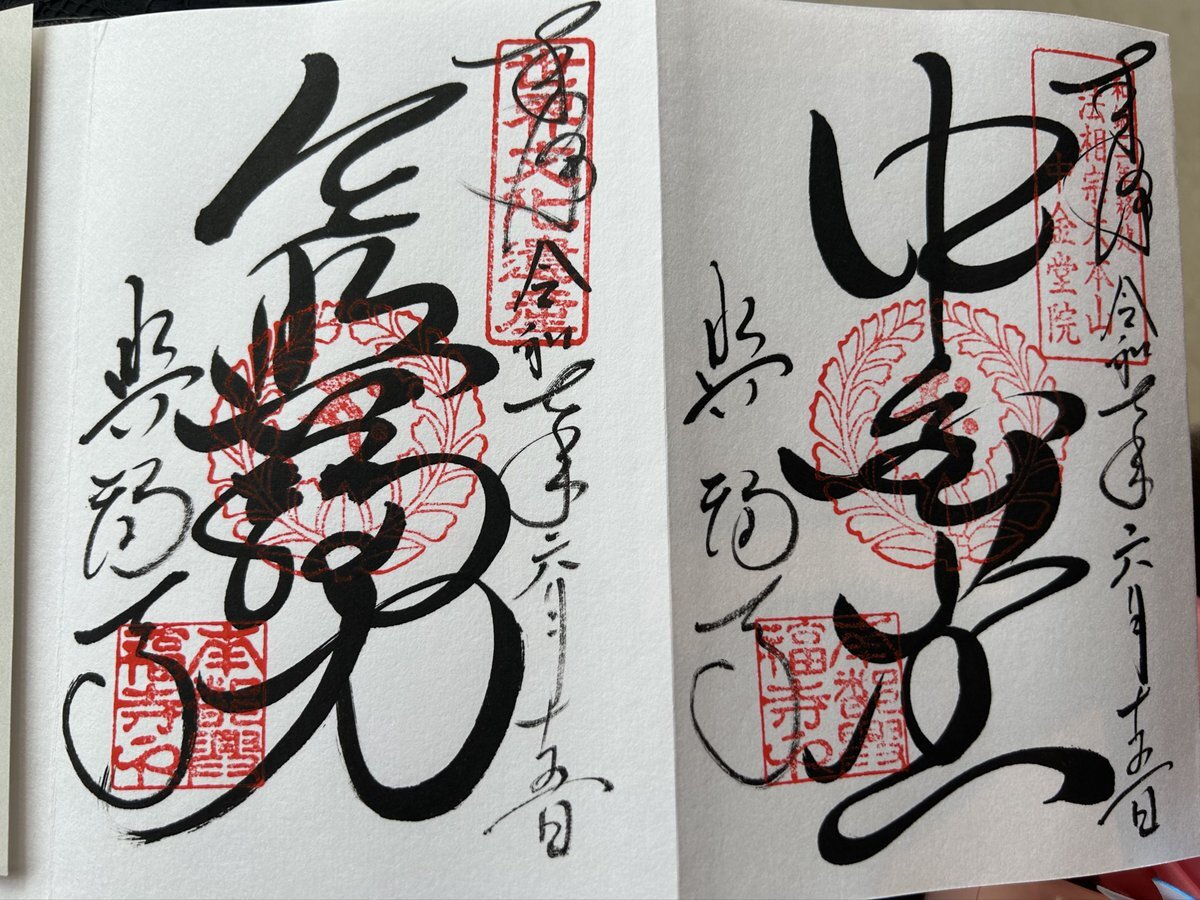 奉拝 令和七年六月十五日
法相宗大本山
中金堂院
中金堂
興福寺
南都興
福寺印
奉拝 令和七年六月十五日
世界文化遺産
令興福力
興福寺
南都興
福寺印